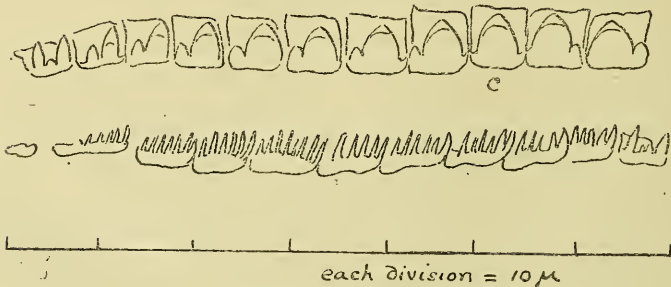 C
each division = 10 μ